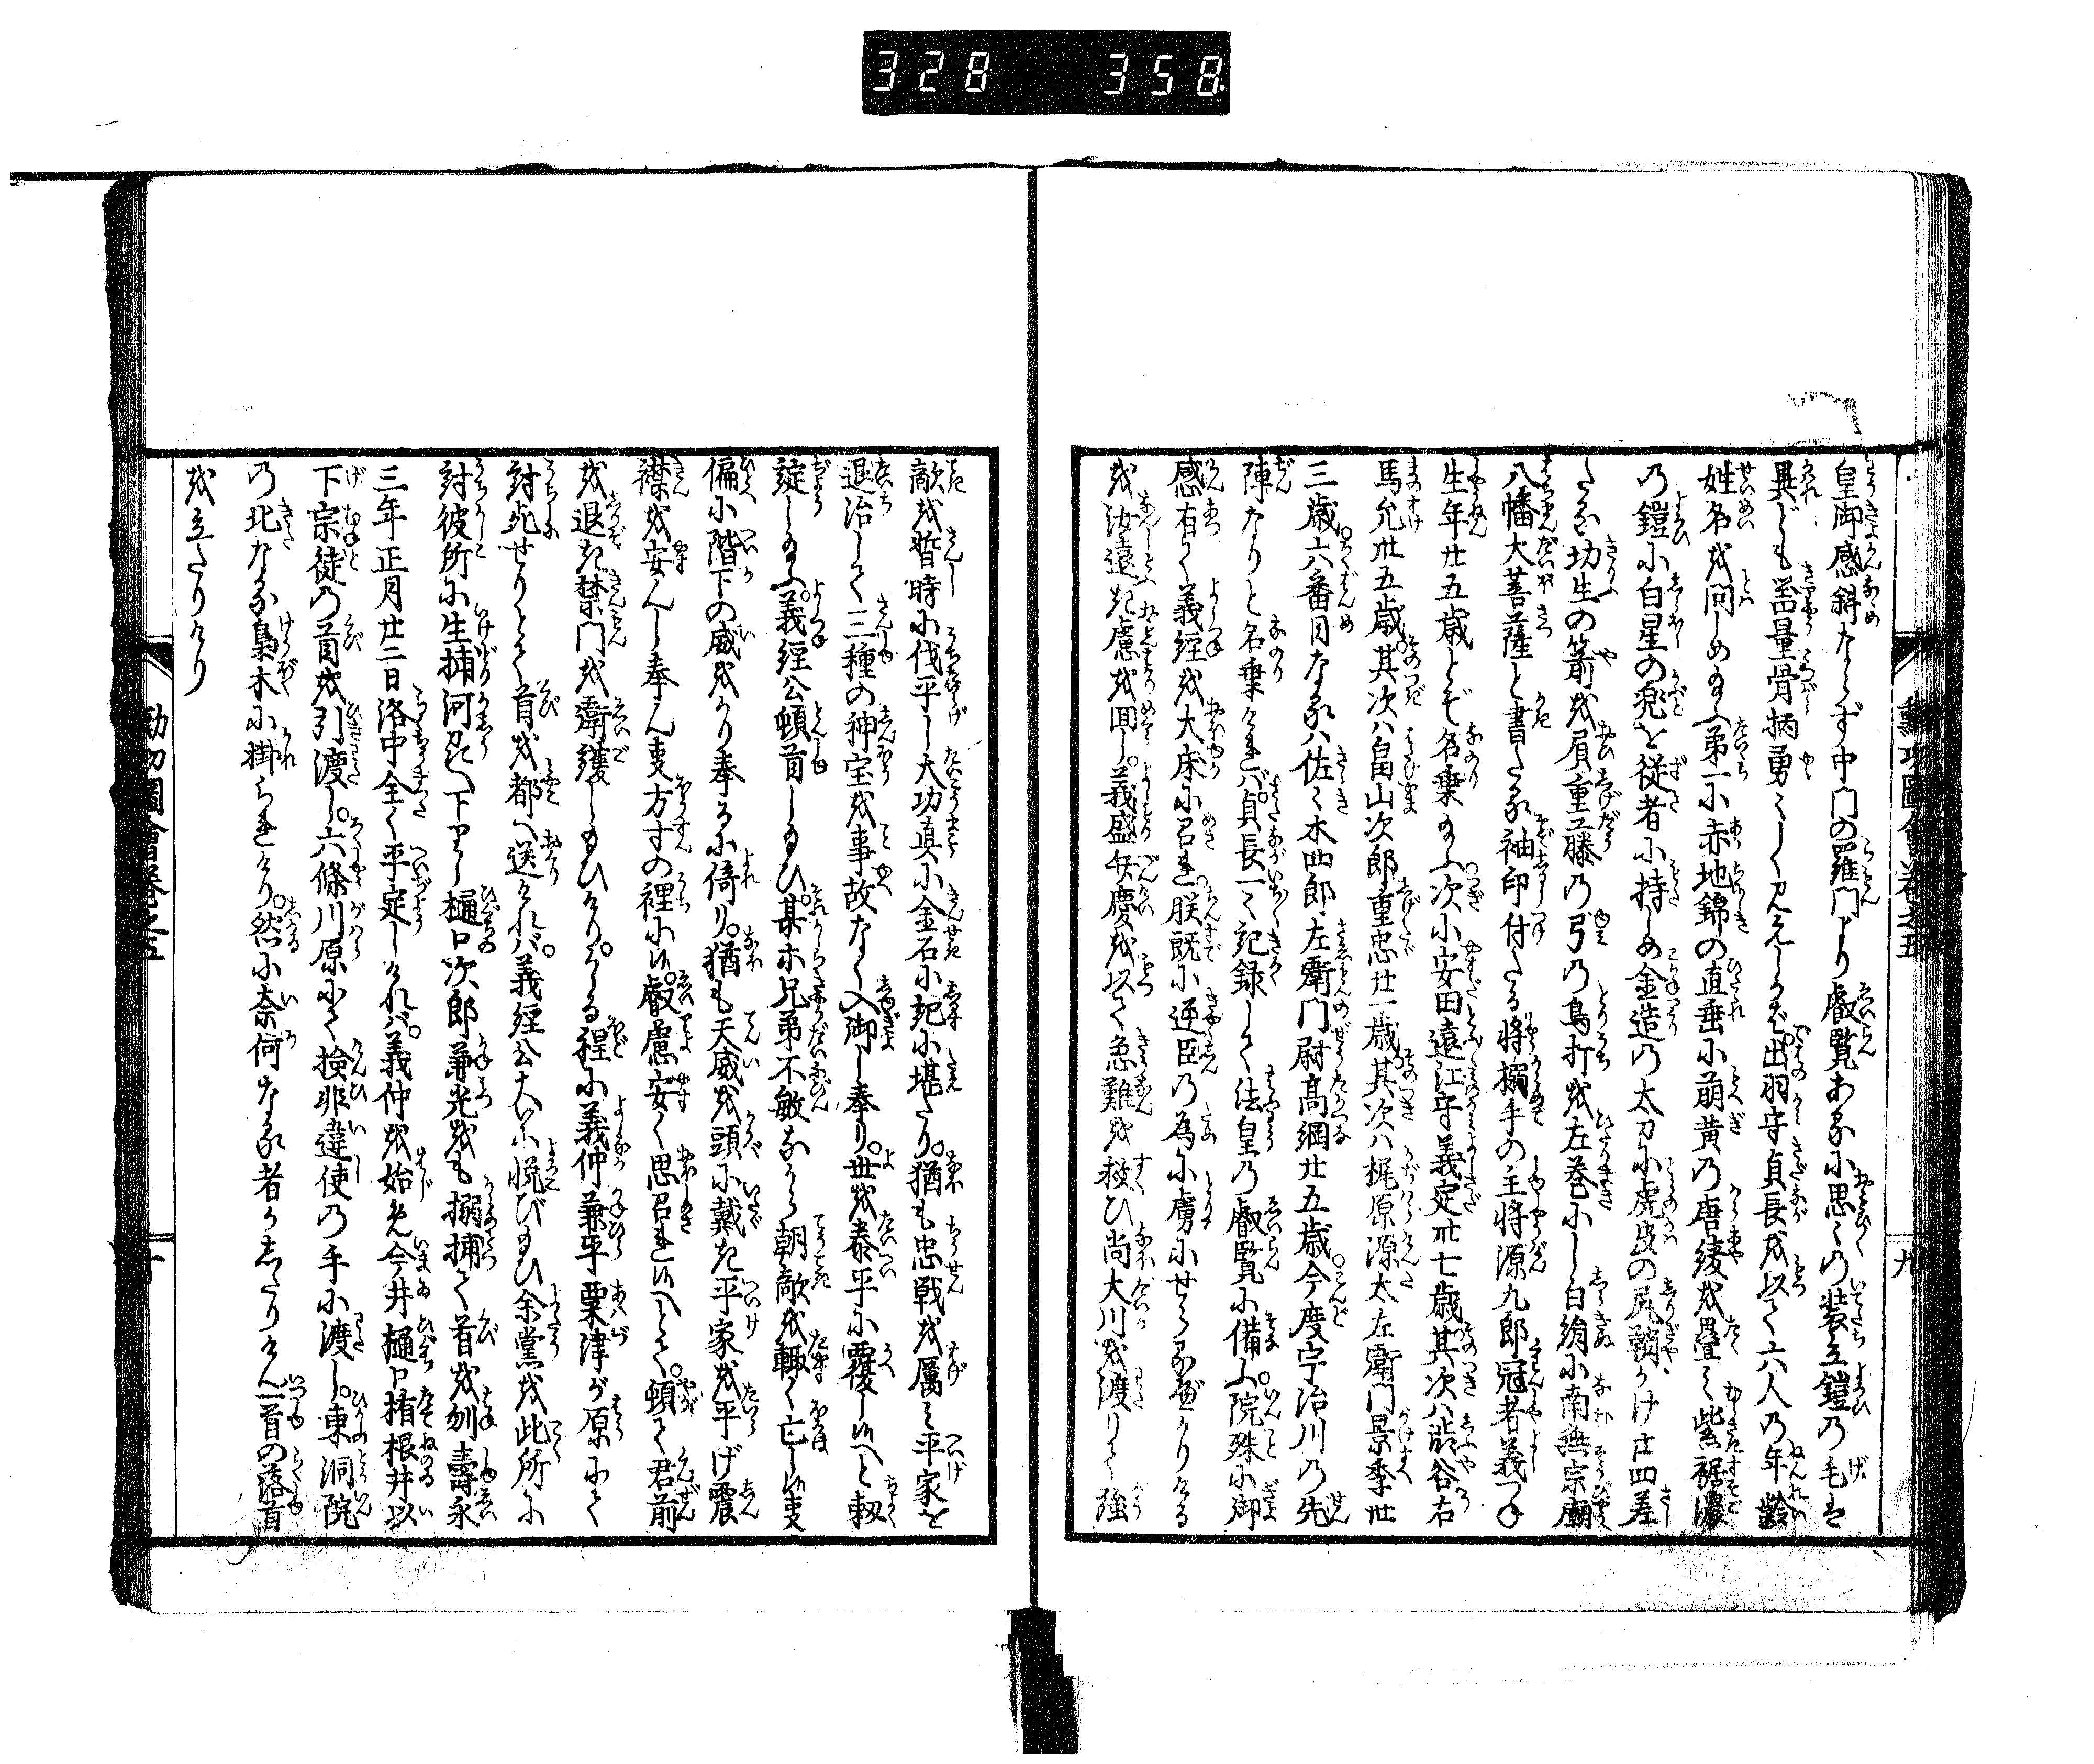 328 358
勲功圖會巻之五
九
皇御感斜ならず中門の羅門より叡覧ある小思々の装立鎧の毛は
異ども器量骨柄勇々しく見えしかば出羽守貞長を以て六人の年齢
姓名を問しめ給ふ第一小赤地錦の直垂小萌黄の唐綾を畳て紫裾濃
の鎧小白星の兜を従者小持しめ金造の太刀小虎皮の尻鞘かけ廿四差
たる切生の箭を肩重藤の弓の鳥打を左巻小し白絹小南無宗廟
八幡大菩薩と書たる袖印付たる将搦手の主将源九郎冠者義つね
生年廿五歳とぞ名乗給ふ次小安田遠江守義定卅七歳其次ハ渋谷右
馬允卅五歳其次ハ畠山次郎重忠廿一歳其次ハ梶原源太左衛門景季廿
三歳六番目なるハ佐々木四郎左衛門尉高綱廿五歳今度宇治川の先
陣なりと名乗けれバ貞長一々記録して法皇の叡覧小備ふ院殊小御
感有て義経を大床小召れ朕既小逆臣の為小虜小せらるべかりける
を汝遠き慮を回し義盛弁慶を以て急難を救ひ尚大川を渡りて強
敵を暫時小伐平し大功真小金石小記小堪たり猶も忠戦を属み平家を
退治して三種の神宝を事故なく入御し奉り世を泰平小覆し候へと勅
諚し給ふ義経公頓首し給ひ某ホ兄弟不敏ながら朝敵を輙く亡し候事
偏小階下の威をかり奉る小倚り猶も天威を頭小戴き平家を平げ震
襟を安んじ奉ん事方寸の裡小候叡慮安く思召れ候へとて頓て君前
を退き禁門を衛護し給ひけりかゝる程小義仲兼平粟津が原小て
討死せりとて首を都へ送けれバ義經公大小悦び給ひ余黨を此所小
討彼所小生捕河内へ下りし樋口次郎兼光をも搦捕て首を刎壽永
三年正月廿二日洛中全く平定しけれバ義仲を始め今井樋口楯根井以
下宗徒の首を引渡し六條川原小て檢非違使の手小渡し東洞院
の北なる梟木小掛られけり然小奈何なる者かしたりけん一首の落首
を立たりけり
勲功圖會巻之五
十